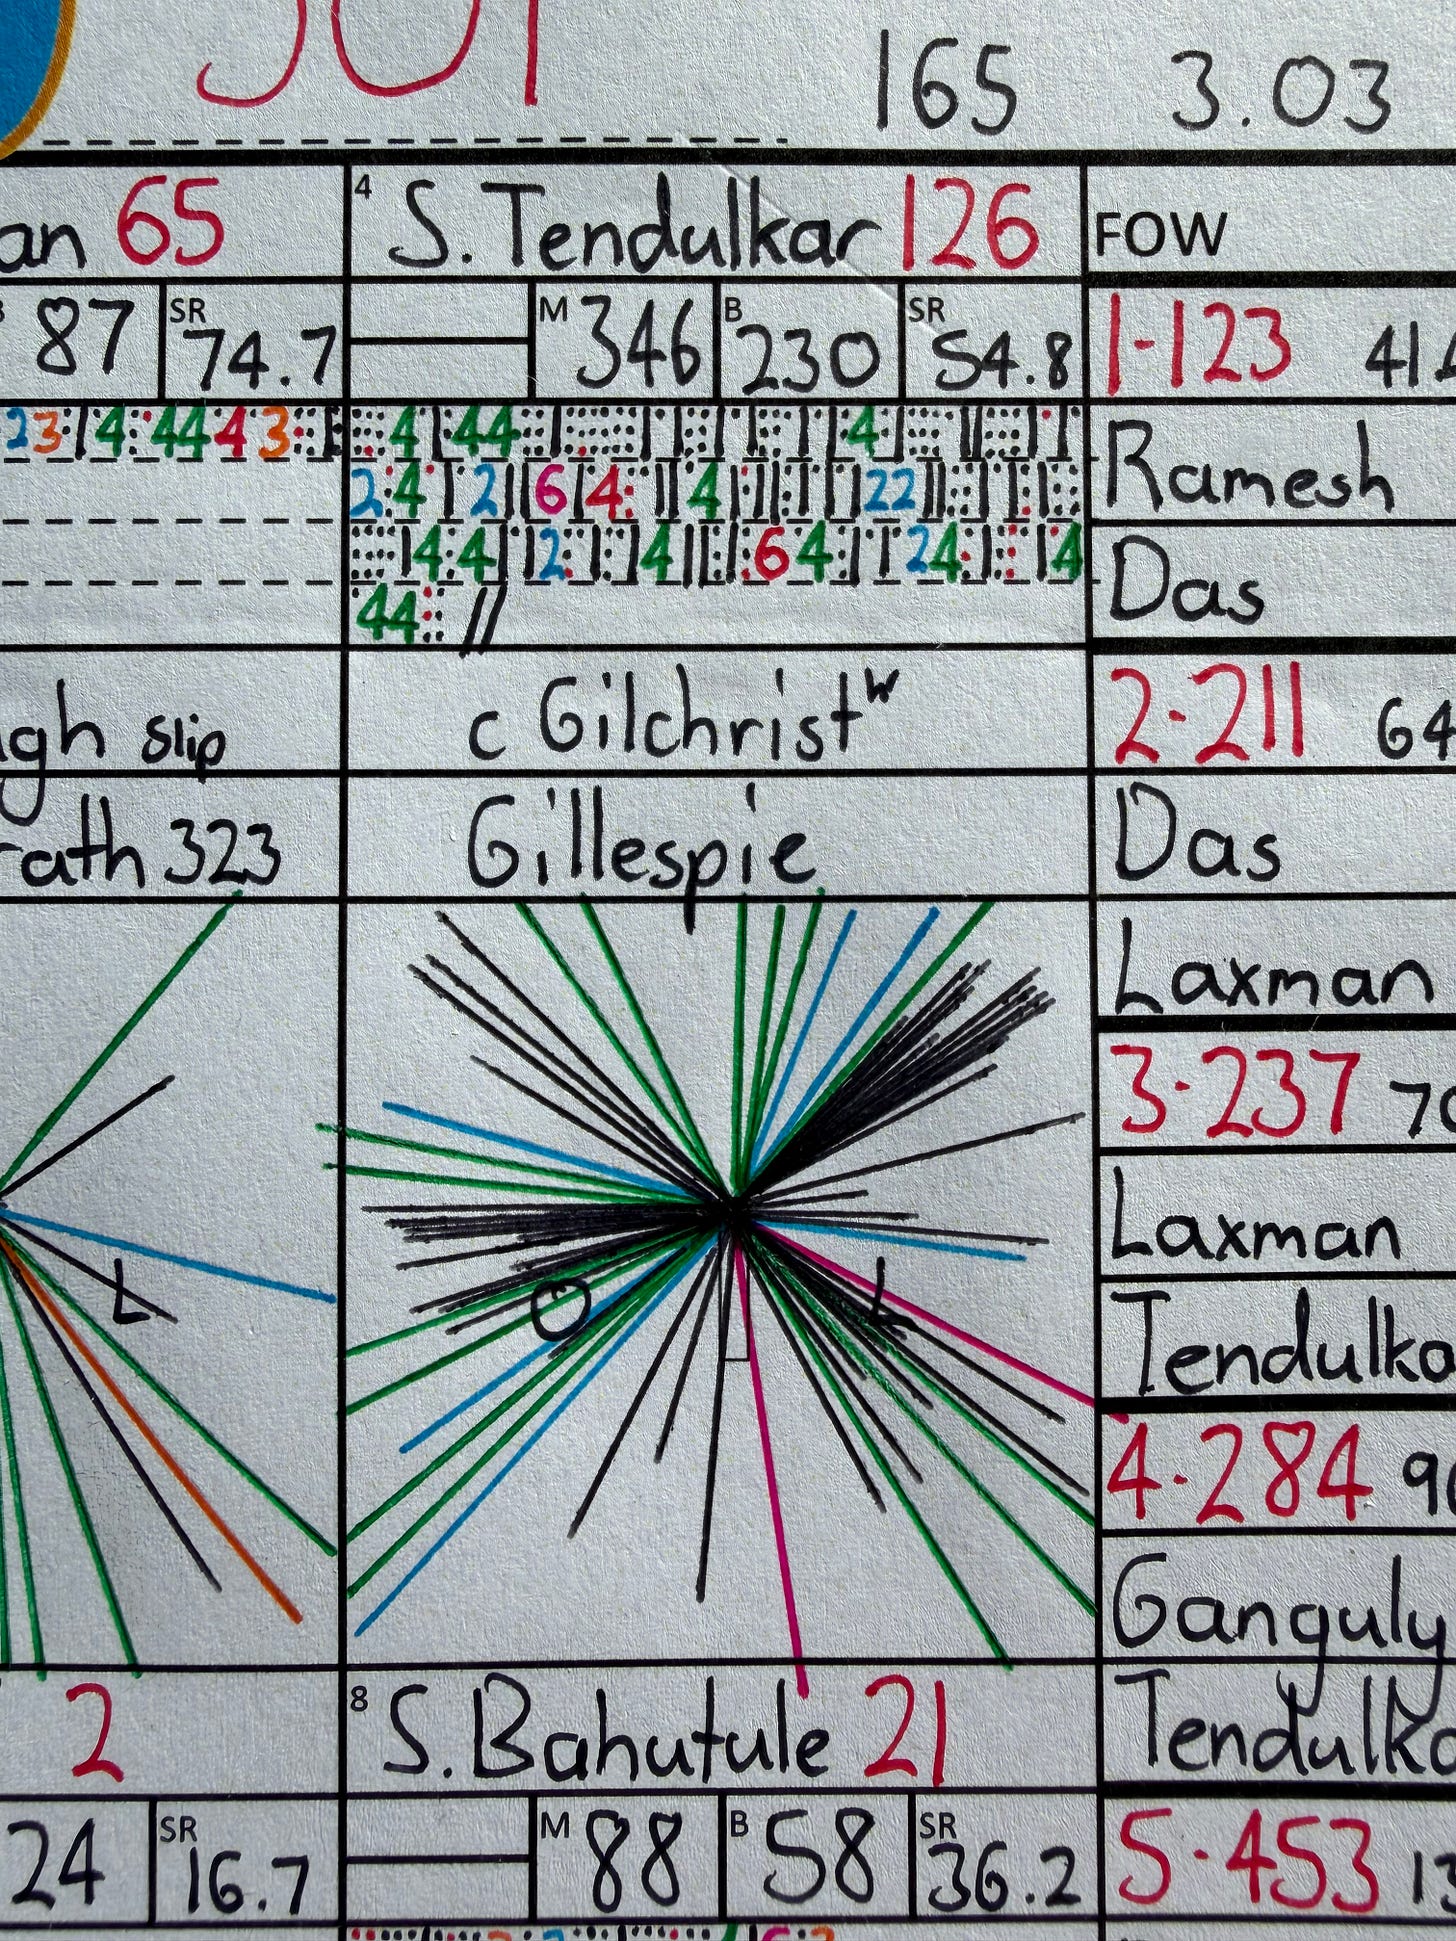 501 165 3.03
an 65
4 S. Tendulkar 126
FOW
87 SR 74.7
M 346 B 230 SR 54.8
1-123 41.
23 4 44 4 3
4 44 4
Ramesh
2 4 2 6 4 4 22
4 4 2 4 6 4 24 4
Das
44
gh slip
c Gilchrist w
2-211 64
rath 323
Gillespie
Das
Laxman
3-237 70
Laxman
L
O
L
Tendulka
4-284 90
Ganguly
2
8 S. Bahutule 21
Tendulka
24 SR 16.7
M 88 B 58 SR 36.2
5-453 13